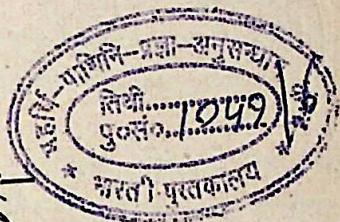 महर्षि-पाणिनि-प्रज्ञा-अनुसन्धान
तिथी..............
पु०सं०..1049
* भारती-पुस्तकालय *